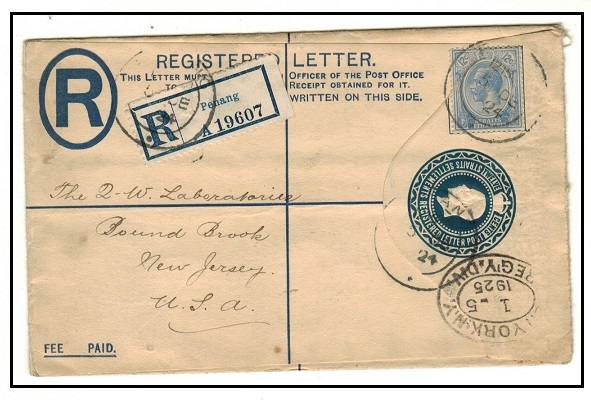 REGISTERED LETTER.
THIS LETTER MUST
OFFICER OF THE POST OFFICE
RECEIPT OBTAINED FOR IT.
WRITTEN ON THIS SIDE.
R
R
Penang
A 19607
12c
STRAITS SETTLEMENTS REGISTERED LETTER
The Q-W. Laboratories
Bound Brook
New Jersey.
U. S. A.
24
YORK, N.Y.
REG'Y. DIV.
1-5
1925
FEE PAID.